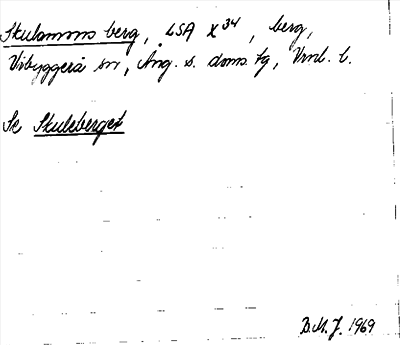 Skulamms berg, LSA X³⁴, berg,
Vibyggerå sn, Ång. s. doms. tg, Vrnl. l.
Se Skuleberget
B.M.J. 1969